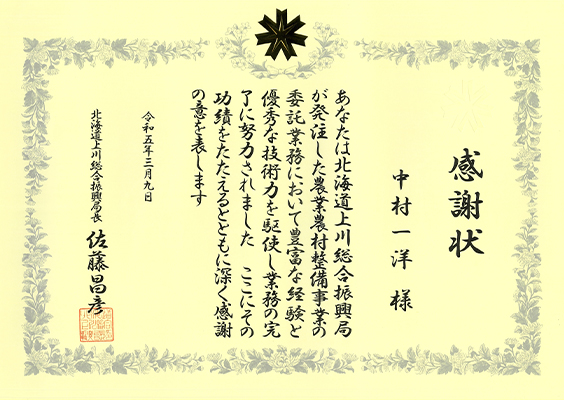 感謝状
中村一洋 様
あなたは北海道上川総合振興局
が発注した農業農村整備事業の
委託業務において豊富な経験と
優秀な技術力を駆使し業務の完
了に努力されました ここにその
功績をたたえるとともに深く感謝
の意を表します
令和五年三月九日
北海道上川総合振興局長 佐藤昌彦